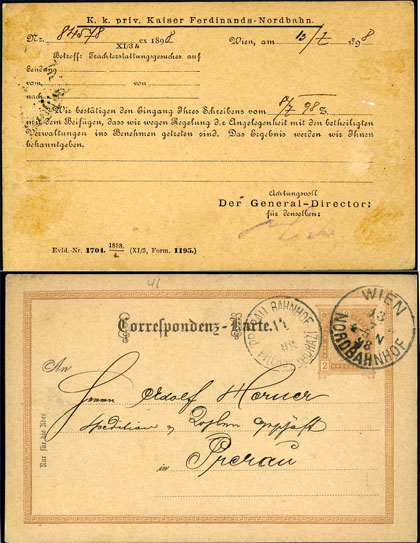 K. k. priv. Kaiser Ferdinands-Nordbahn.
Nr. 84578 ex 1898 Wien, am 10/7 1898
XI/3b
Betreff: Frachterstattungsgesuches auf
Sendung
vom von
nach
Wir bestätigen den Eingang Ihres Schreibens vom 8/7 98
mit dem Beifügen, dass wir wegen Regelung d.r Angelegenheit mit den betheiligten
Verwaltungen ins Benehmen getreten sind. Das Ergebniss werden wir Ihnen
bekanntgeben.
Achtungsvoll
Der General-Director:
für denselben:
Evid.-Nr. 1704. 1898./4. (XI/3, Form. 1195.)
41
Correspondenz-Karte.
PRERAU BAHNHOF
WIEN
13
7
98
NORDBAHNHOF
2
An
Herrn Adolf Horner
Spedition
in Prerau
Nur für die Adresse